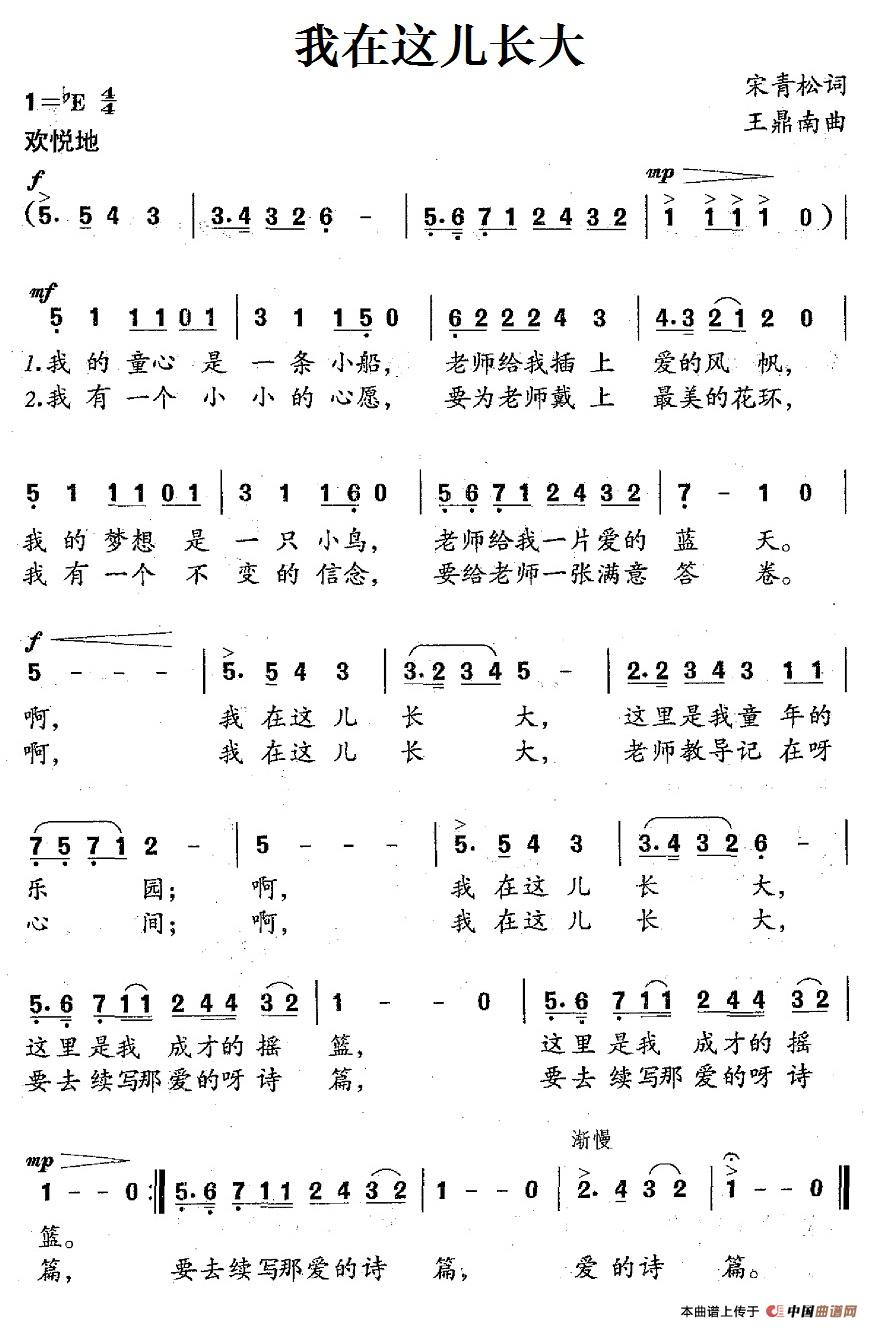 我在这儿长大
宋青松词
1=♭E 4/4
王鼎南曲
欢悦地
f mp
(5. 5 4 3 | 3.4 3 2 6 - | 5.6 7 1 2 4 3 2 | 1 1 1 1 0) |
mf
5 1 1 1 0 1 | 3 1 1 5 0 | 6 2 2 2 4 3 | 4.3 2 1 2 0 |
1.我 的 童心 是 一 条 小船, 老师给我插上 爱的风 帆,
2.我 有 一个 小 小 的 心愿, 要为老师戴上 最美的花环,
5 1 1 1 0 1 | 3 1 1 6 0 | 5 6 7 1 2 4 3 2 | 7 - 1 0 |
我 的 梦想 是 一 只 小鸟, 老师给我一片爱的 蓝 天。
我 有 一个 不 变 的 信念, 要给老师一张满意 答 卷。
f
5 - - - | 5. 5 4 3 | 3.2 3 4 5 - | 2.2 3 4 3 1 1 |
啊, 我 在这 儿 长 大, 这里是我童 年的
啊, 我 在这 儿 长 大, 老师教导记 在呀
7 5 7 1 2 - | 5 - - - | 5. 5 4 3 | 3.4 3 2 6 - |
乐 园; 啊, 我 在这 儿 长 大,
心 间; 啊, 我 在这 儿 长 大,
5.6 7 1 1 2 4 4 3 2 | 1 - - 0 | 5.6 7 1 1 2 4 4 3 2 |
这里是我 成才的摇 篮, 这里是我 成才的摇
要去续写那爱的呀诗 篇, 要去续写那爱的呀诗
mp 渐慢
1 - - 0 :‖ 5.6 7 1 1 2 4 3 2 | 1 - - 0 | 2. 4 3 2 | 1 - - 0 ‖
篮。
篇, 要去续写那爱的诗 篇, 爱 的诗 篇。
本曲谱上传于 中国曲谱网